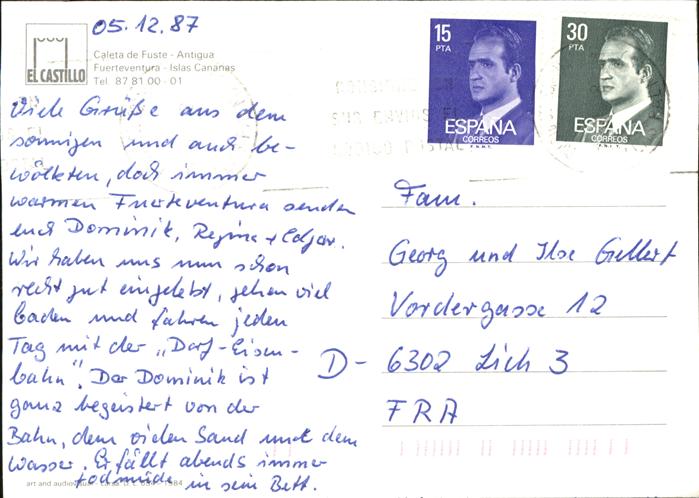 05.12.87
EL CASTILLO
Caleta de Fuste - Antigua
Fuerteventura - Islas Canarias
Tel. 87 81 00 - 01
Viele Grüße aus dem
sonnigen und auch be-
wölkten, doch immer
warmen Fuerteventura senden
euch Dominik, Regina + Edgar.
Wir haben uns nun schon
recht gut eingelebt, gehen viel
baden und fahren jeden
Tag mit der „Dorf-Eisen-
bahn“. Der Dominik ist
ganz begeistert von der
Bahn, dem vielen Sand und dem
Wasser. Er fällt abends immer
todmüde in sein Bett.
art and audiovisual
15
PTA
ESPAÑA
CORREOS
30
PTA
ESPAÑA
CORREOS
Fam.
Georg und Ilse Gellert
Vordergasse 12
D- 6302 Lich 3
FRA